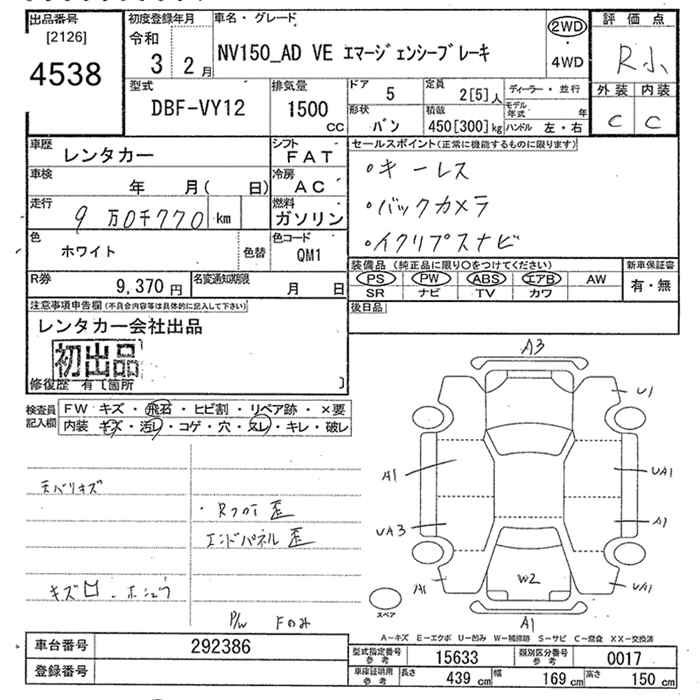 出品番号 [2126] 4538
初度登録年月 令和 3年 2月
車名・グレード NV150_AD VE エマージェンシーブレーキ
2WD・4WD
評価点 R小
外装 内装
C C
型式 DBF-VY12
排気量 1500 cc
ドア 5
定員 2[5]人
ディーラー・並行
形状 バン
積載 450[300]kg
モデル年式 年
ハンドル 左・右
車歴 レンタカー
シフト FAT
セールスポイント(正常に機能するものに限ります)
・キーレス
・バックカメラ
・イクリプスナビ
車検 年 月( 日)
冷房 AC
走行 9万0千770 km
燃料 ガソリン
色 ホワイト 色替
色コード QM1
装備品 (純正品に限り〇をつけてください)
PS PW ABS エアB AW
SR ナビ TV カワ
新車保証書 有・無
R券 9,370円
名変通知期限 月 日
後日品
注意事項申告欄(不具合内容等は具体的に記入して下さい)
レンタカー会社出品
初出品
修復歴 有〔箇所 〕
検査員記入欄
FW キズ・飛石・ヒビ割・リペア跡・×要
内装 キズ・汚レ・コゲ・穴・スレ・キレ・破レ
天バリキズ
・Rフロア歪
エンドパネル歪
P/W Fのみ
A3
U1
A1
UA1
UA3
A1
A1
W2
UA1
A1
スペア
A-キズ E-エクボ U-凹み W-補修跡 S-サビ C-腐食 XX-交換済
車台番号 292386
登録番号
型式指定番号 参考 15633
類別区分番号 参考 0017
車庫証明用 参考 長さ 439 cm 幅 169 cm 高さ 150 cm